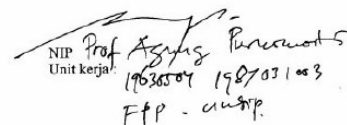 NIP Prof Agung Purnomoadi
Unit kerja: 19630504 198703 1 003
FPP - Undip.